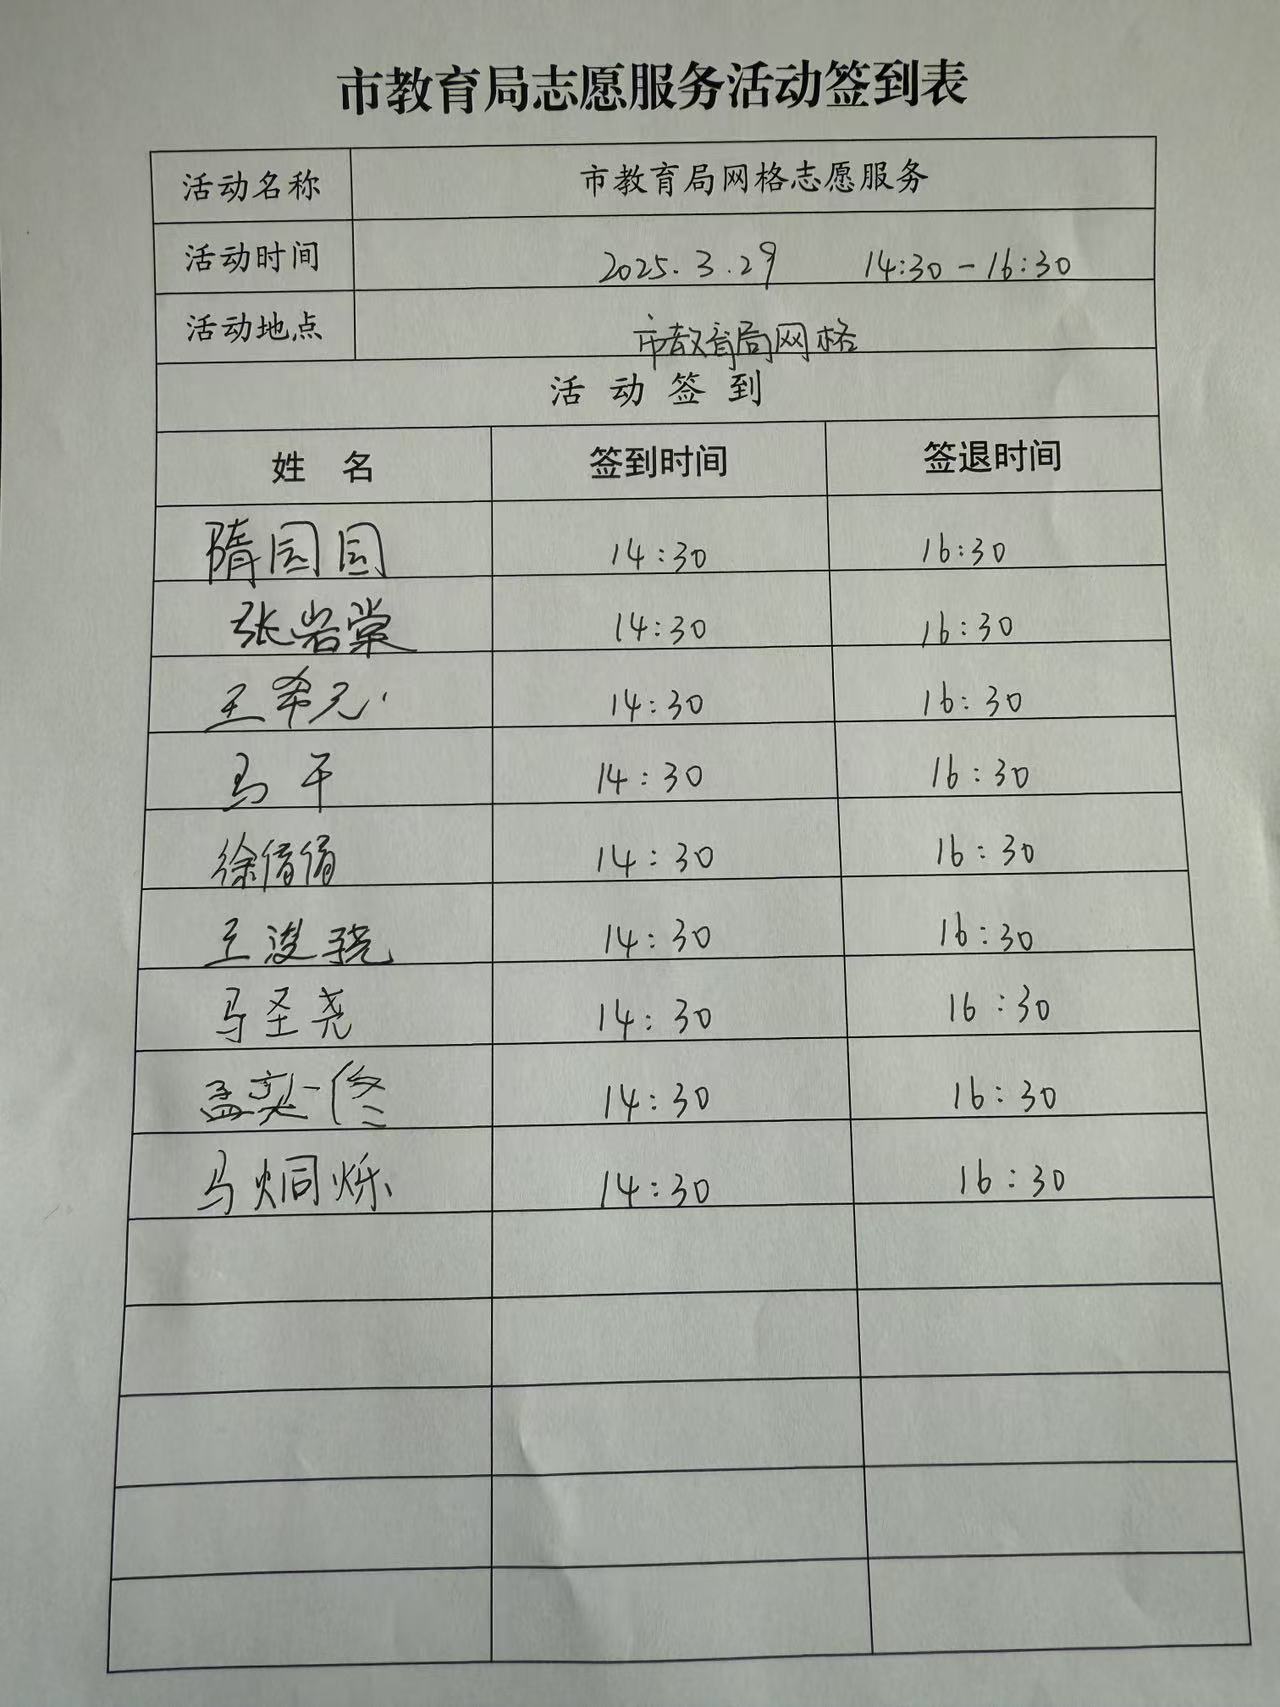 市教育局志愿服务活动签到表
活动名称 市教育局网格志愿服务
活动时间 2025.3.29 14:30-16:30
活动地点 市教育局网格
活动签到
姓名 签到时间 签退时间
隋园园 14:30 16:30
张岩棠 14:30 16:30
王希元 14:30 16:30
马干 14:30 16:30
徐倩倩 14:30 16:30
王浚骁 14:30 16:30
马圣尧 14:30 16:30
孟奕佟 14:30 16:30
马炯烁 14:30 16:30